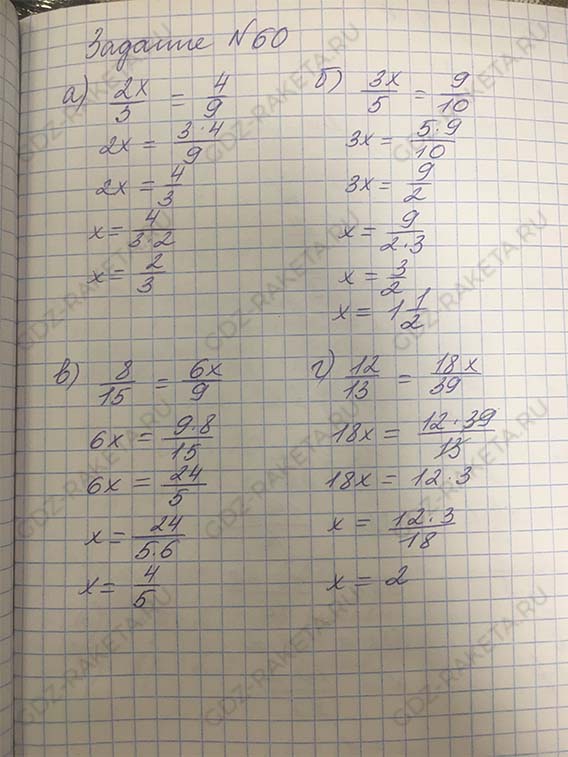 Задание №60
а) 2x/3 = 4/9
2x = 3·4/9
2x = 4/3
x = 4/3·2
x = 2/3
б) 3x/5 = 9/10
3x = 5·9/10
3x = 9/2
x = 9/2·3
x = 3/2
x = 1 1/2
в) 8/15 = 6x/9
6x = 9·8/15
6x = 24/5
x = 24/5·6
x = 4/5
г) 12/13 = 18x/39
18x = 12·39/13
18x = 12·3
x = 12·3/18
x = 2
GDZ-RAKETA.RU